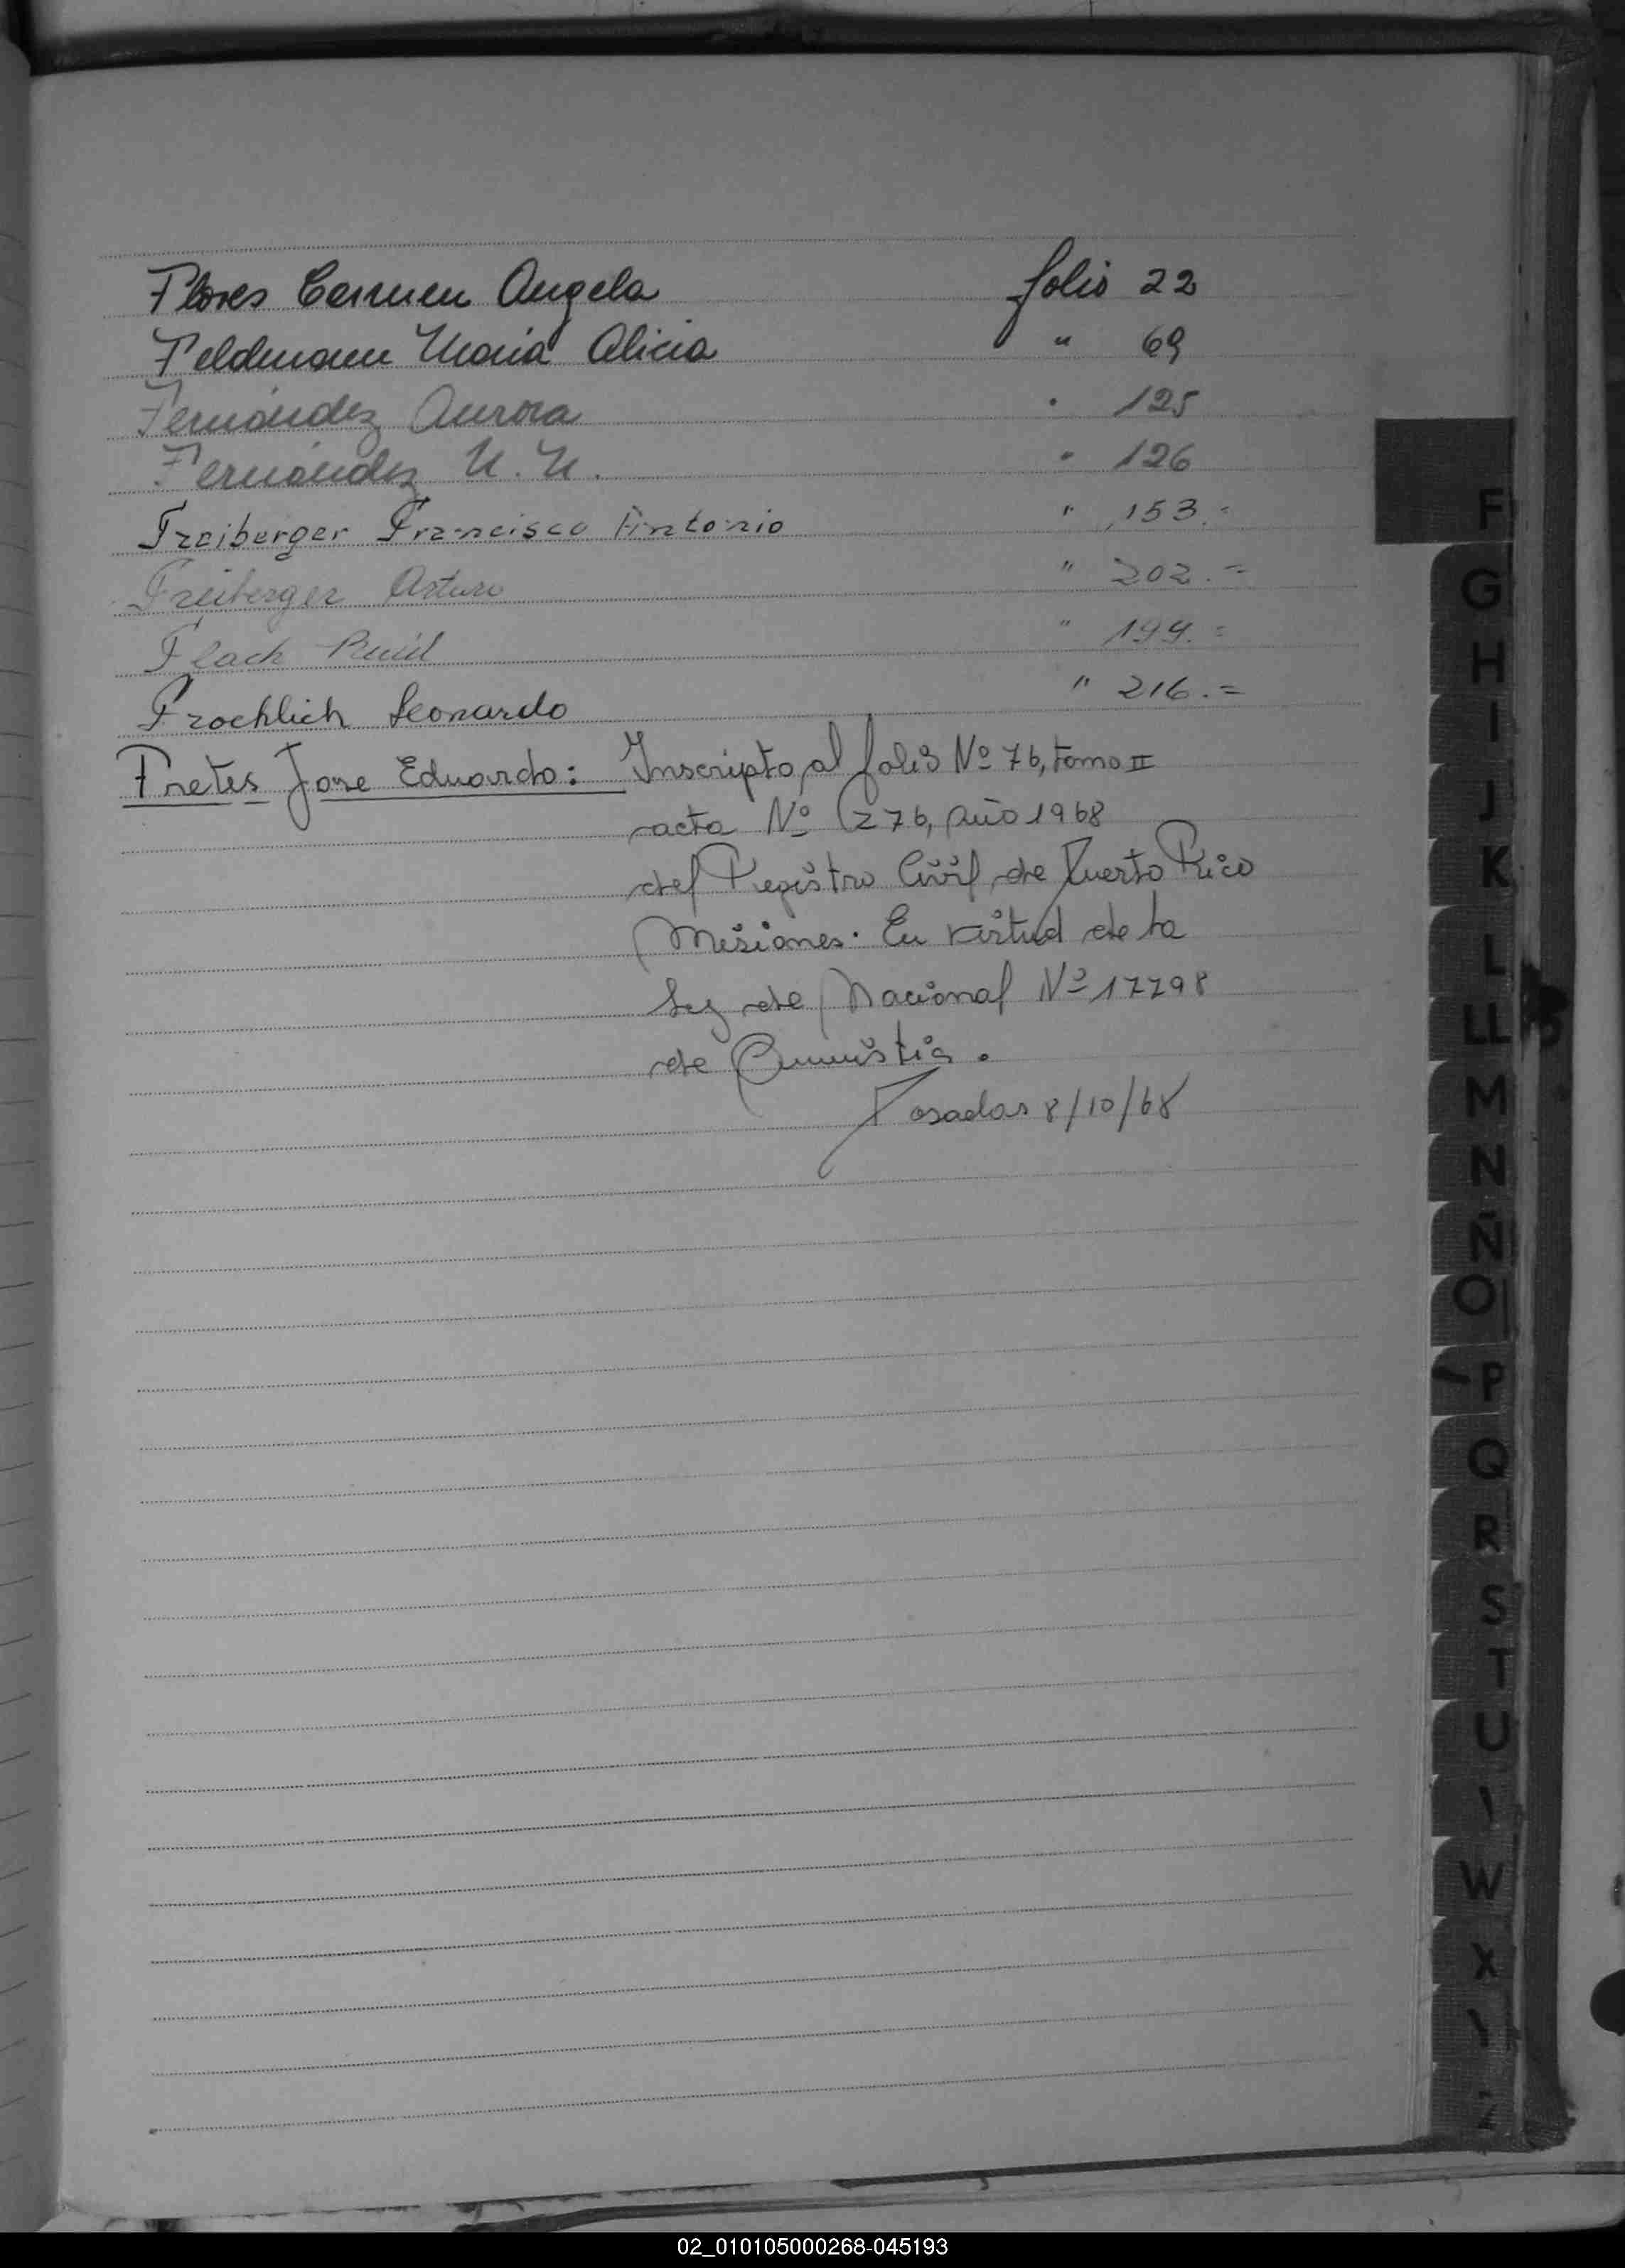 Flores Carmen Angela folio 22
Feldmann Maria Alicia " 69
Fernández Aurora " 125
Fernández N. N. " 126
Freiberger Francisco Antonio " 153.=
Freiberger Arturo " 202.=
Flach Raúl " 199.=
Froehlich Leonardo " 216.=
Fretes Jose Eduardo: Inscripto al folio Nº 76, tomo II
acta Nº 276, año 1968
del Registro Civil de Puerto Rico
Misiones. En virtud de la
Ley de Nacional Nº 17798
de Amnistia.
Posadas 8/10/68
F
G
H
I
J
K
L
LL
M
N
Ñ
O
P
Q
R
S
T
U
W
X
Z
02_010105000268-045193